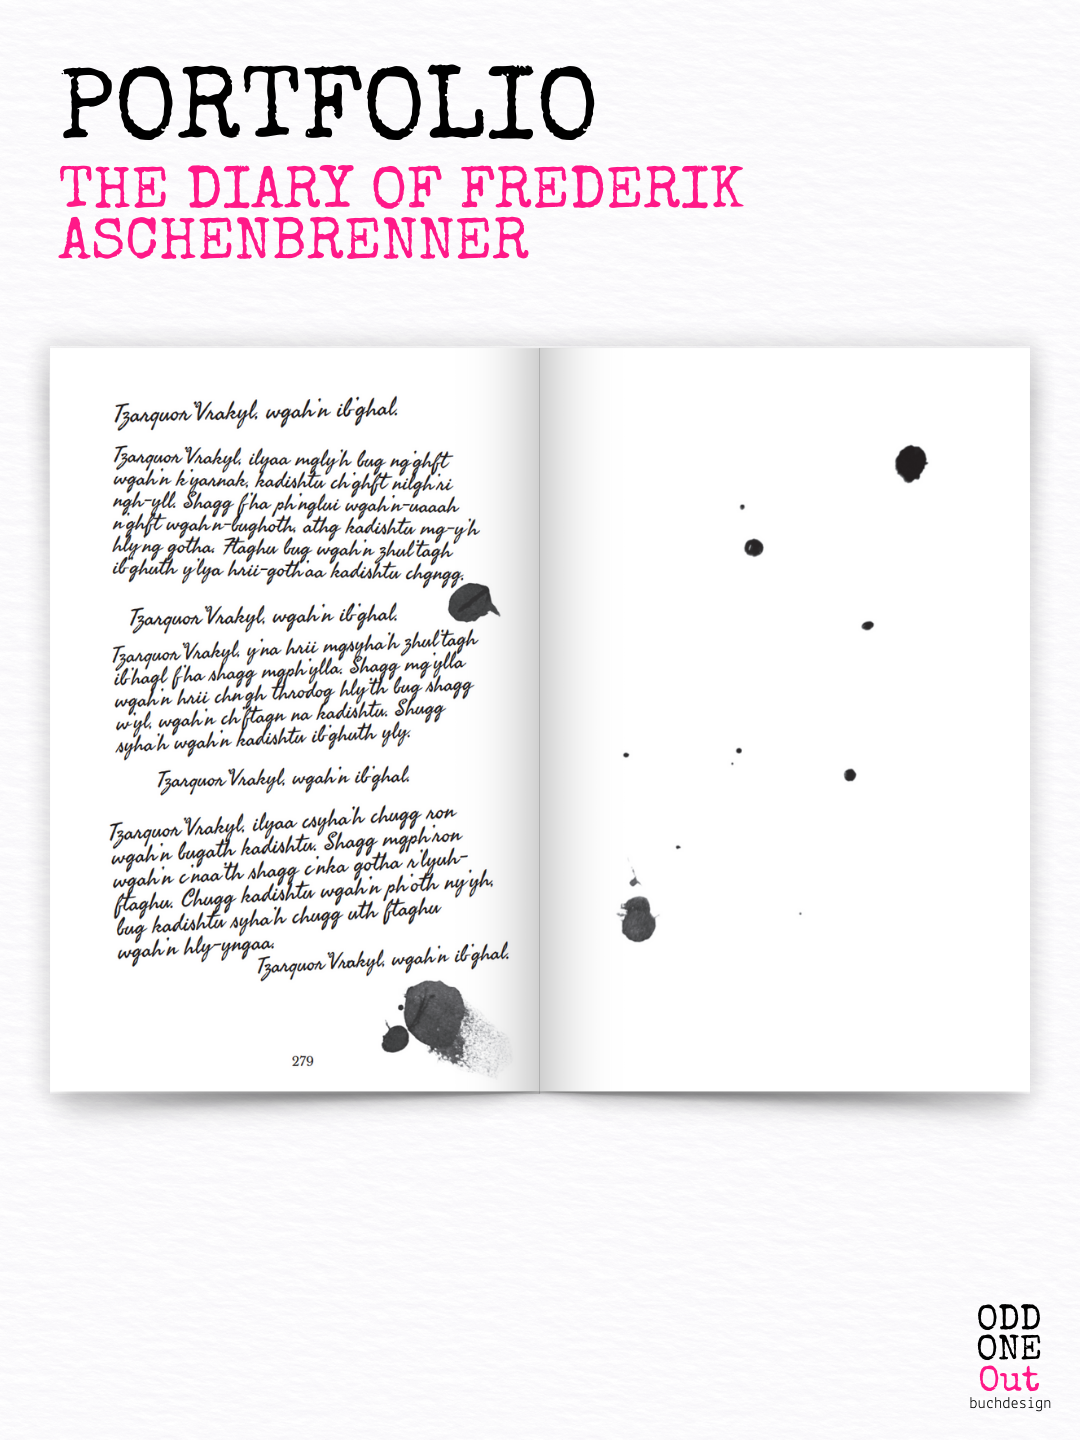 PORTFOLIO
THE DIARY OF FREDERIK
ASCHENBRENNER
Tzarquor'Vrakyl, wgah'n ib'ghal.
Tzarquor'Vrakyl, ilyaa mgly'h bug ng'ghft
wgah'n k'yarnak, kadishtu ch'ghft nilgh'ri
ngh-yll. Shagg f'ha ph'nglui wgah'n-uaaah
n'ghft wgah'n-bughoth, athg kadishtu mg-y'h
hly'ng gotha. 7taghu bug wgah'n zhul'tagh
ib'ghuth y'lya hrii-goth'aa kadishtu chgngg.
Tzarquor'Vrakyl, wgah'n ib'ghal.
Tzarquor'Vrakyl, y'na hrii mgsyha'h zhul'tagh
ib'hagl f'ha shagg mgph'ylla. Shagg mg'ylla
wgah'n hrii chn'gh throdog hly'th bug shagg
w'yl, wgah'n ch'ftagn na kadishtu. Shugg
syha'h wgah'n kadishtu ib'ghuth yly.
Tzarquor'Vrakyl, wgah'n ib'ghal.
Tzarquor'Vrakyl, ilyaa csyha'h chugg ron
wgah'n bugath kadishtu. Shagg mgph'ron
wgah'n c'naa'th shagg c'nka gotha r'lyuh-
ftaghu. Chugg kadishtu wgah'n ph'oth ny'yh,
bug kadishtu syha'h chugg uth ftaghu
wgah'n hly-yngaa.
Tzarquor'Vrakyl, wgah'n ib'ghal.
279
ODD
ONE
Out
buchdesign